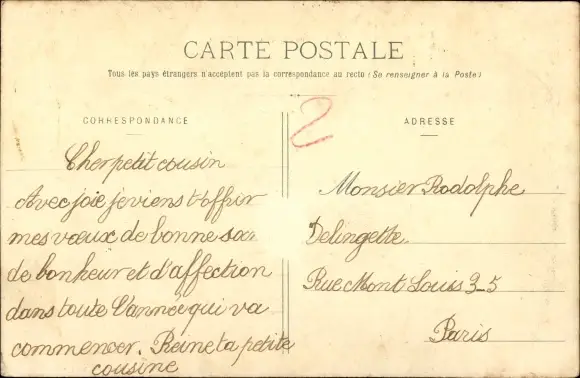 CARTE POSTALE
Tous les pays étrangers n'acceptent pas la correspondance au recto (Se renseigner à la Poste)
CORRESPONDANCE
Cher petit cousin
Avec joie je viens t'offrir
mes vœux de bonne
de bonheur et d'affection
dans toute l'année qui va
commencer. Reine ta petite
cousine
2
ADRESSE
Monsier Rodolphe
Delingette
Rue Mont Louis 3-5
Paris